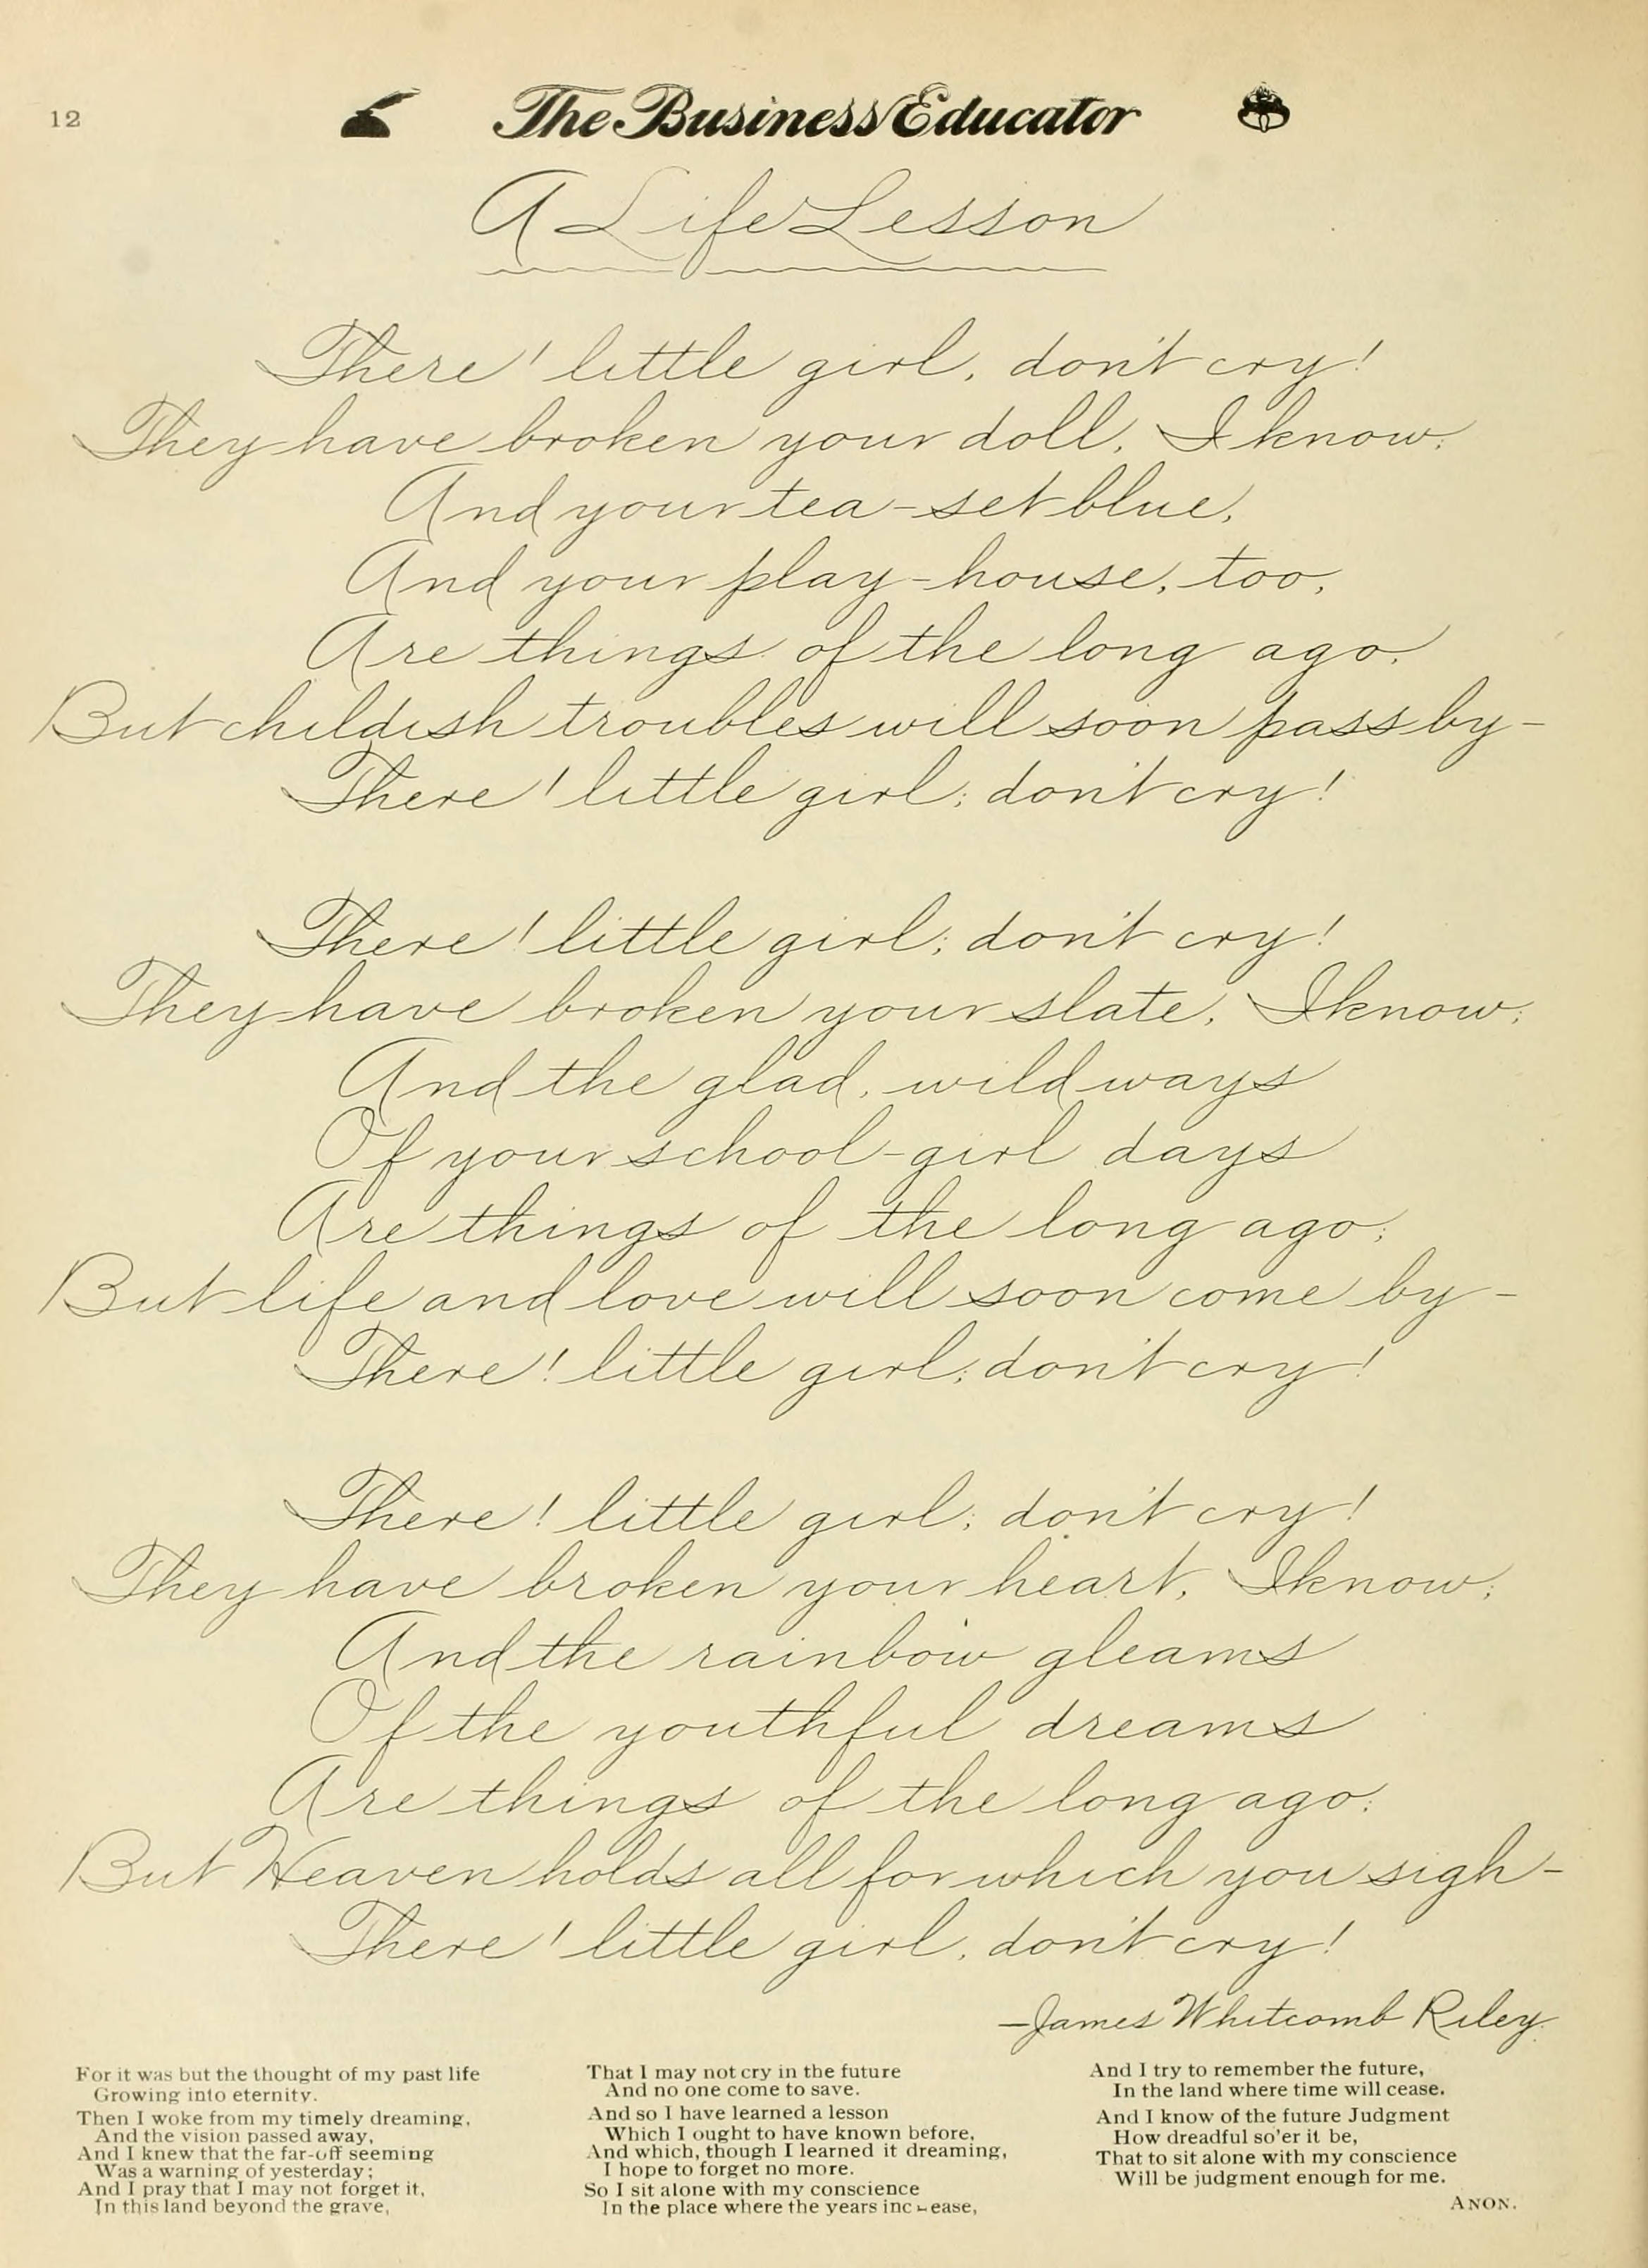 12
The Business Educator
A Life Lesson
There! little girl, don't cry!
They have broken your doll, I know;
And your tea-set blue,
And your play-house, too,
Are things of the long ago.
But childish troubles will soon pass by—
There! little girl; don't cry!
There! little girl; don't cry!
They have broken your slate, I know;
And the glad, wild ways
Of your school-girl days
Are things of the long ago;
But life and love will soon come by—
There! little girl; don't cry!
There! little girl; don't cry!
They have broken your heart, I know;
And the rainbow gleams
Of the youthful dreams
Are things of the long ago;
But Heaven holds all for which you sigh—
There! little girl, don't cry!
—James Whitcomb Riley.
For it was but the thought of my past life
Growing into eternity.
Then I woke from my timely dreaming,
And the vision passed away,
And I knew that the far-off seeming
Was a warning of yesterday;
And I pray that I may not forget it,
In this land beyond the grave,
That I may not cry in the future
And no one come to save.
And so I have learned a lesson
Which I ought to have known before,
And which, though I learned it dreaming,
I hope to forget no more.
So I sit alone with my conscience
In the place where the years increase,
And I try to remember the future,
In the land where time will cease.
And I know of the future Judgment
How dreadful so'er it be,
That to sit alone with my conscience
Will be judgment enough for me.
ANON.